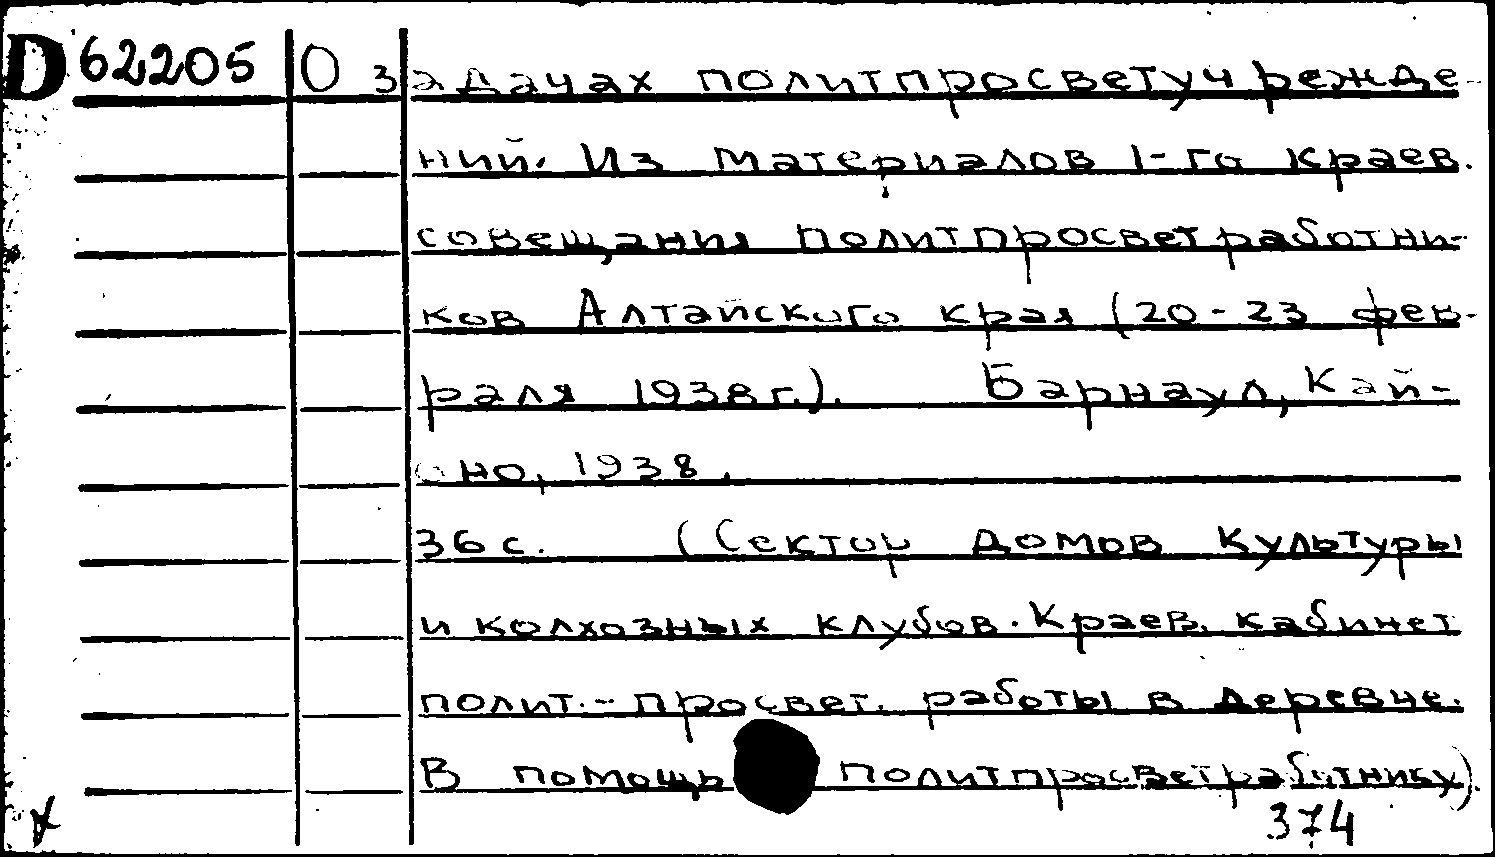 D 62205 О задачах политпросветучрежде
ний. Из материалов 1-го краев.
совещания политпросветработни-
ков Алтайского края (20-23 фев-
раля 1938 г.). Барнаул, Край-
оно, 1938.
36 с. (Сектор домов культуры
и колхозных клубов. Краев. кабинет
полит.-просвет. работы в деревне.
В помощь политпросветработнику)
374